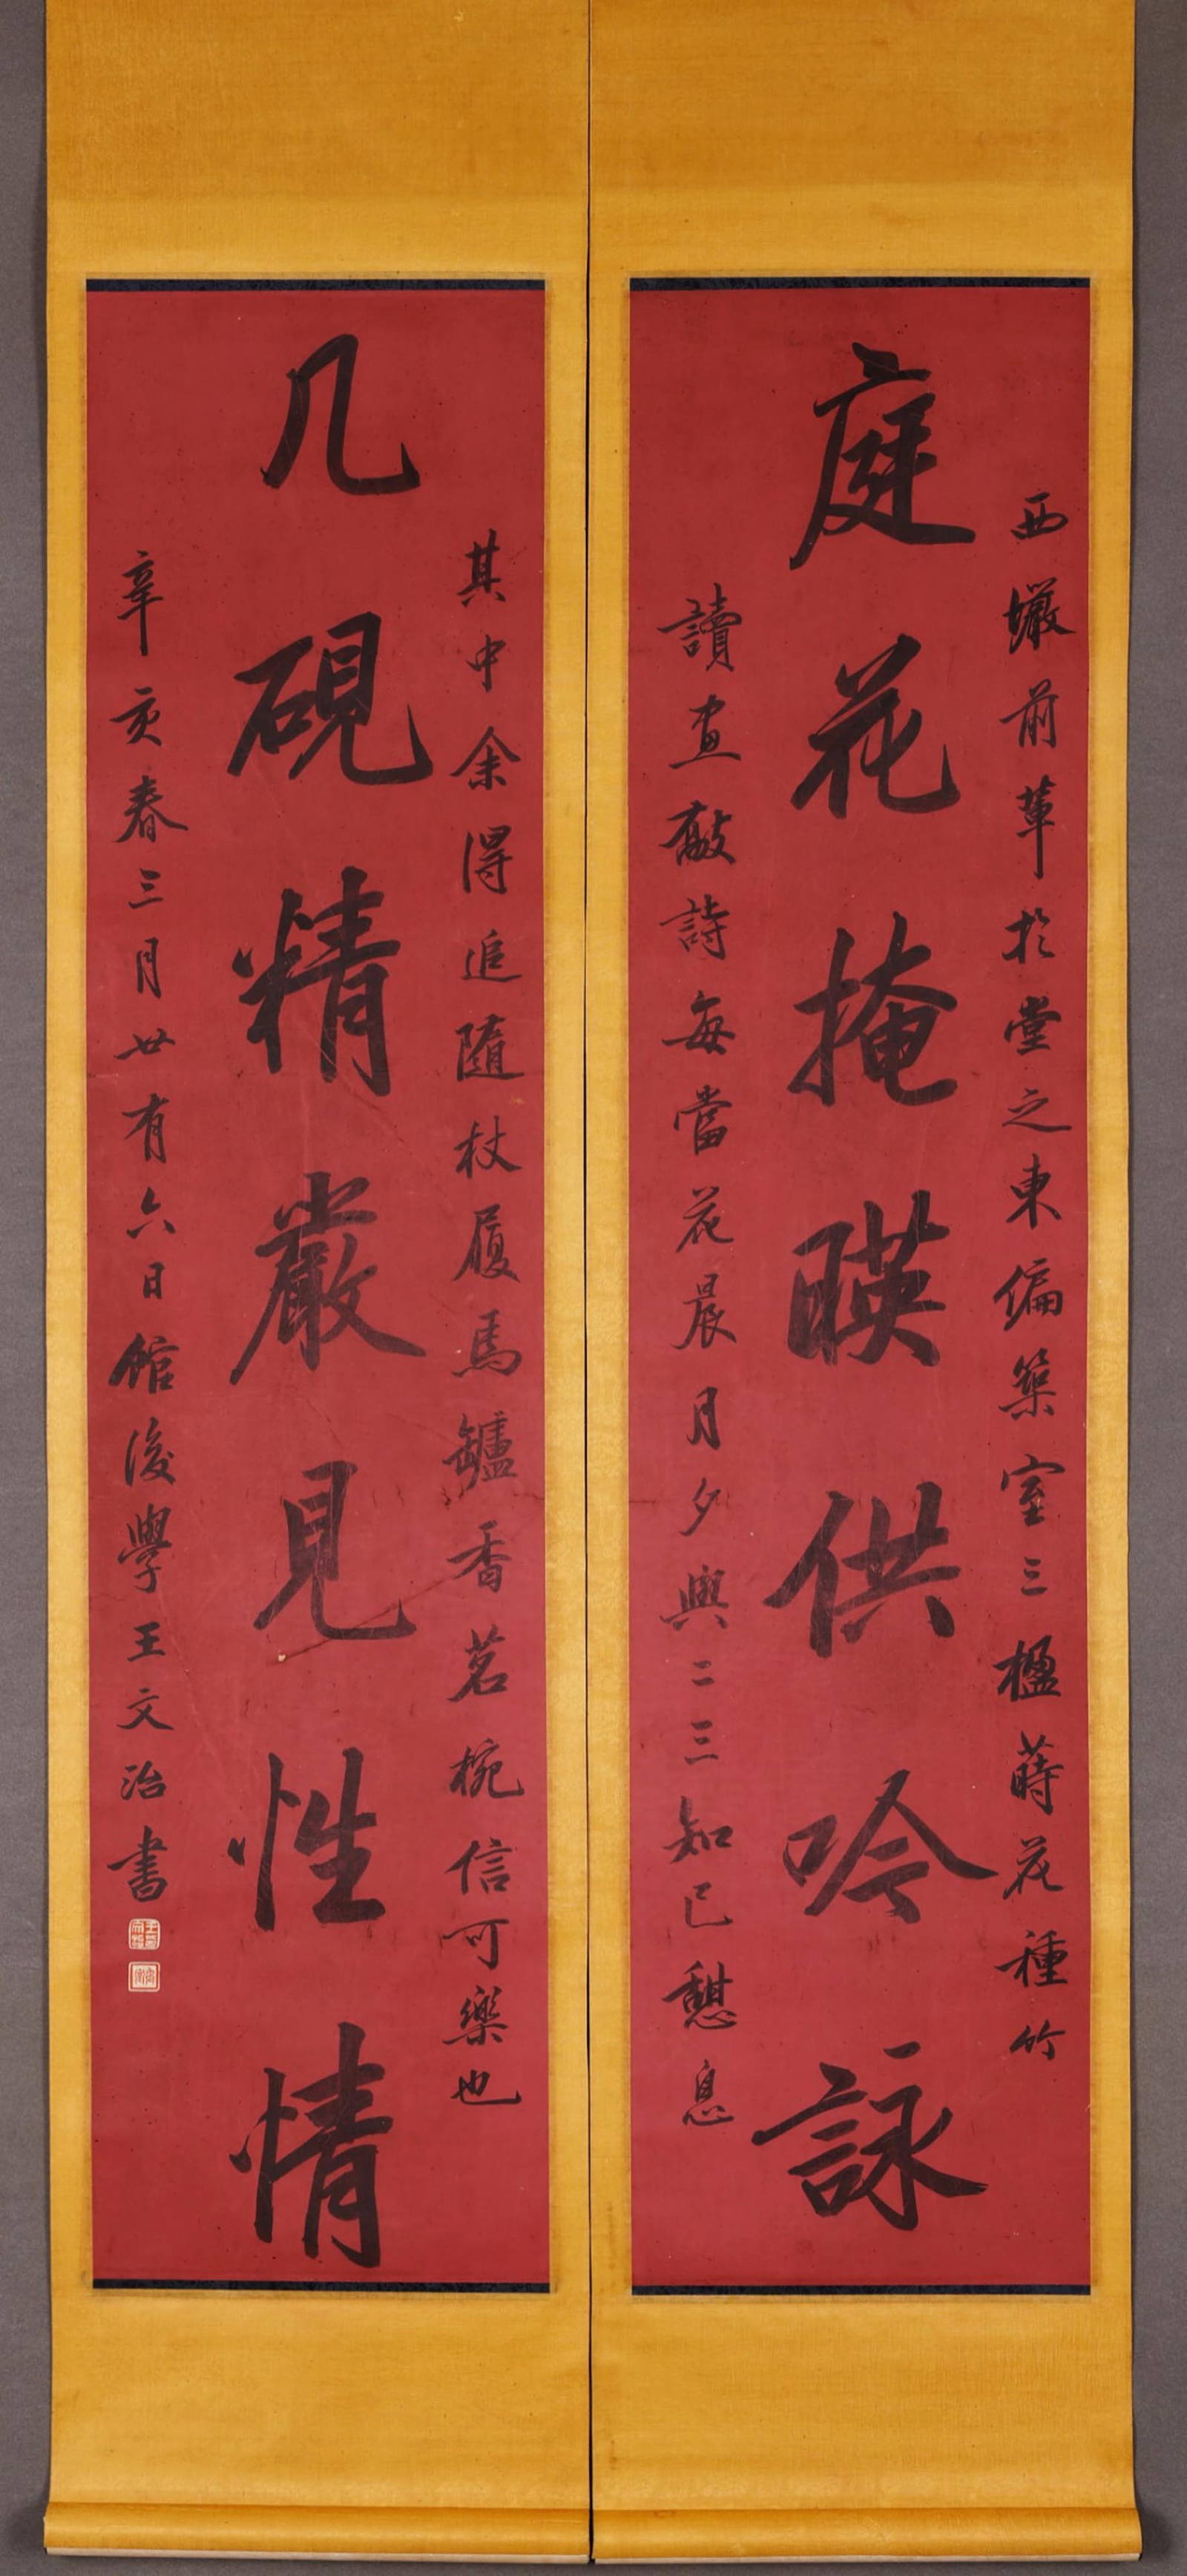 西前輩於堂之東偏築室三楹蒔花種竹
庭花掩暎供吟詠
讀畫敲詩每當花晨月夕與二三知己憩息
其中余得追隨杖履焉罏香茗椀信可樂也
几硯精嚴見性情
辛亥春三月廿有六日館後學王文治書